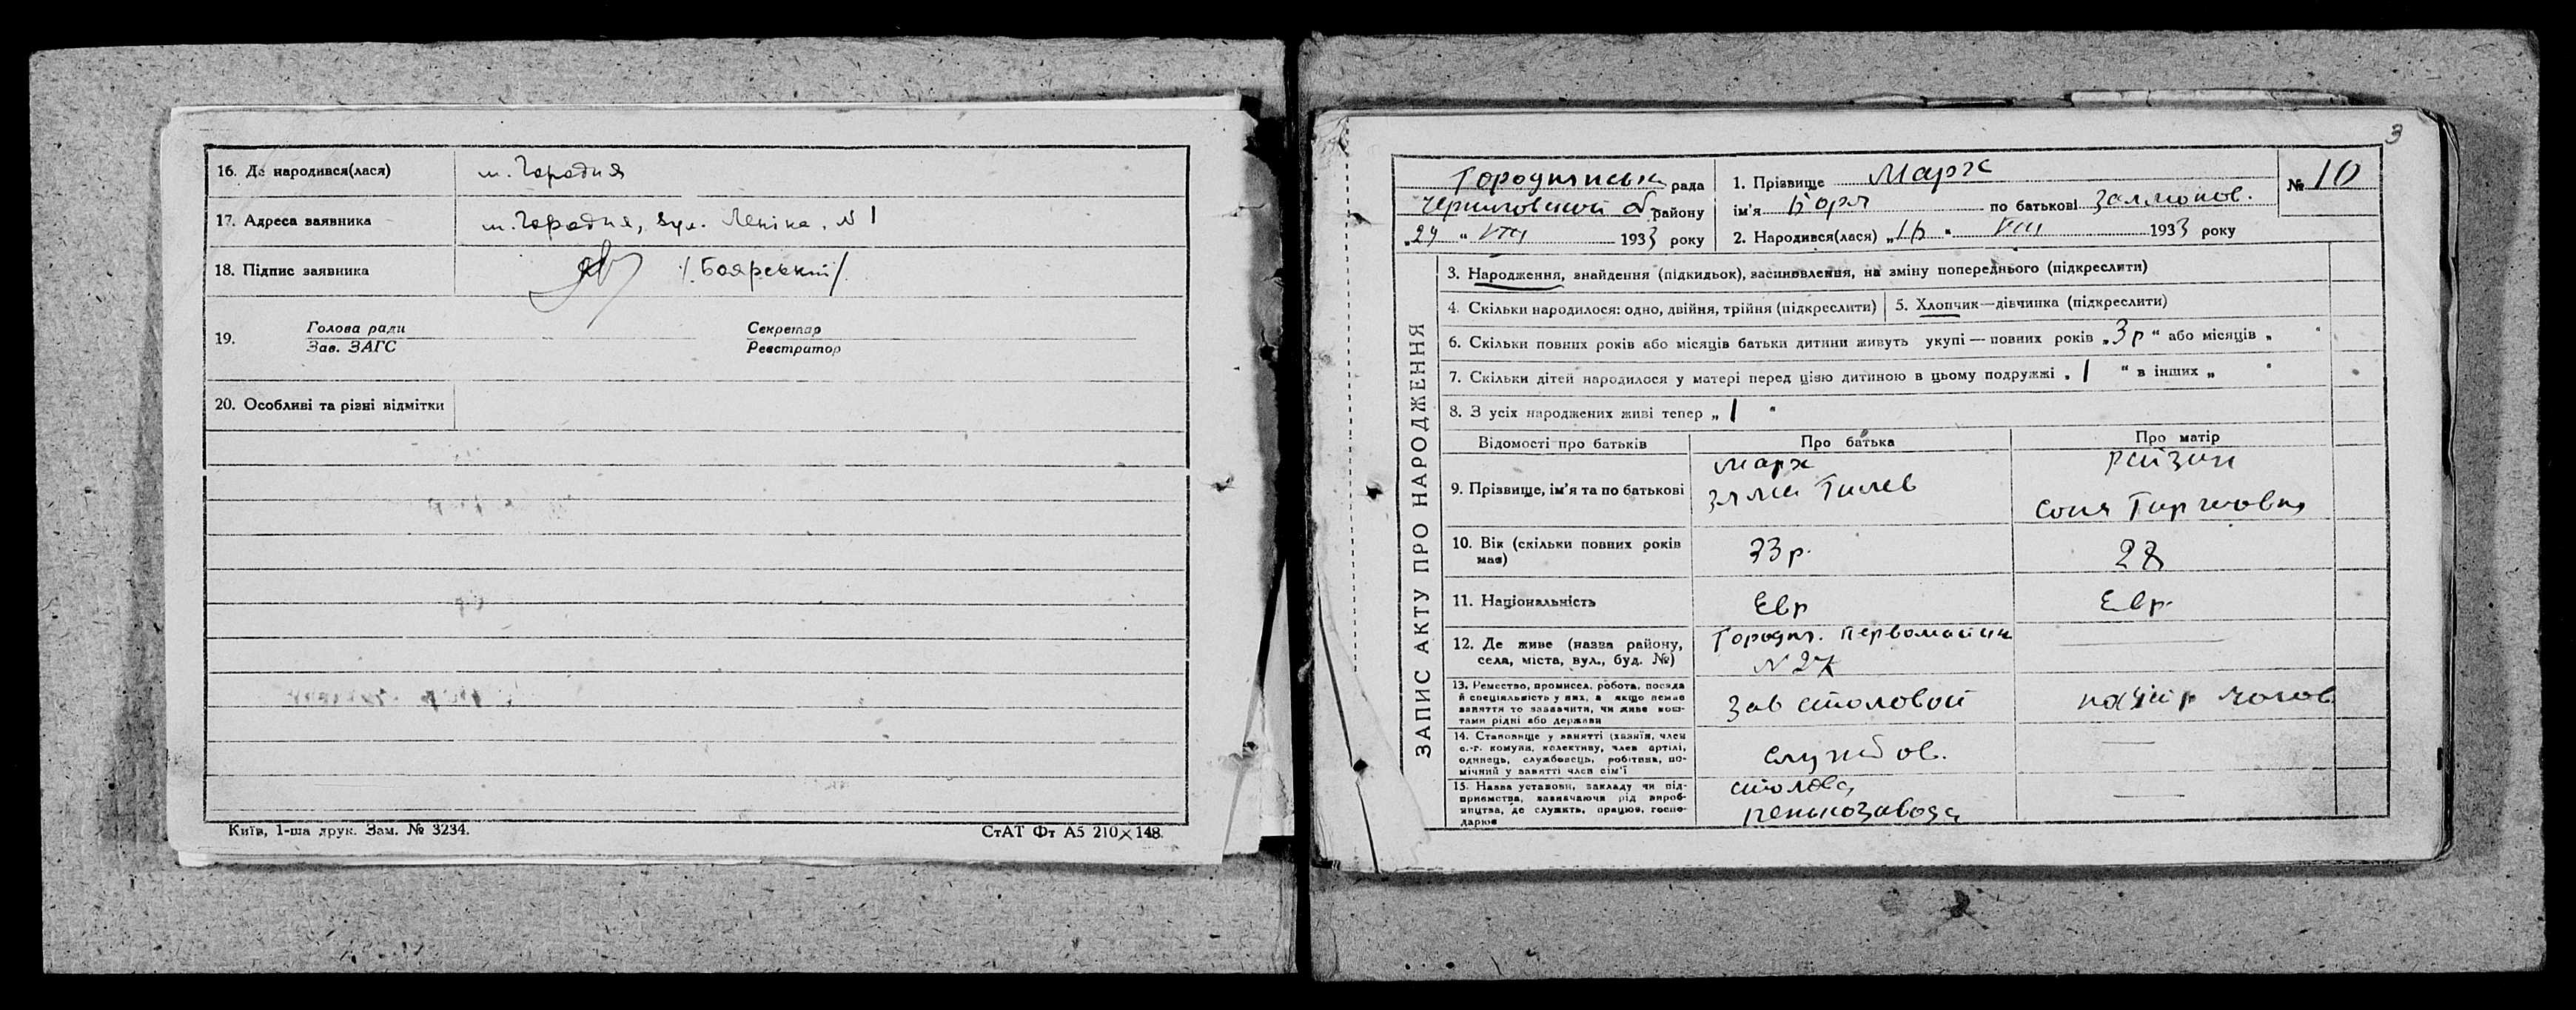 16. Де народився(лася) м. Городня
17. Адреса заявника м. Городня, вул. Леніна, N 1
18. Підпис заявника /Боярський/
19. Голова ради Секретар
Зав. ЗАГС Реєстратор
20. Особливі та різні відмітки
Київ, 1-ша друк. Зам. № 3234. СтАТ Фт А5 210×148.
3
Городнянськ рада
Черниговской об району
„24 “ VIII 1933 року
1. Прізвище Марх
ім'я Боря по батькові Залмонов.
2. Народився(лася) „ “ VIII 1933 року
№ 10
ЗАПИС АКТУ ПРО НАРОДЖЕННЯ
3. Народження, знайдення (підкидьок), засиновлення, на зміну попереднього (підкреслити)
4. Скільки народилося: одно, двійня, трійня (підкреслити) 5. Хлопчик—дівчинка (підкреслити)
6. Скільки повних років або місяців батьки дитини живуть укупі — повних років „3 р “ або місяців „ “
7. Скільки дітей народилося у матері перед цією дитиною в цьому подружжі „ 1 “ в інших „ “
8. З усіх народжених живі тепер „ 1 “
Відомості про батьків Про батька Про матір
9. Прізвище, ім'я та по батькові Марх
Зяма Гилев
Соня
10. Вік (скільки повних років має) 33 р. 28
11. Національність Евр Евр.
12. Де живе (назва району, села, міста, вул., буд. №) Городн. первомайск
N 27
13. Ремество, промисел, робота, посада й спеціяльність у них, а якщо немає заняття то зазначити, чи живе коштами рідні або держави Зав столовой
14. Становище у занятті (хазяїн, член с.-г. комуни, колективу, член артілі, одинець, службовець, робітник, помічний у занятті член сім'ї Службов.
15. Назва установи, закладу чи підприємства, зазначаючи рід виробництва, де служить, працює, господарює столова
пенькозавода